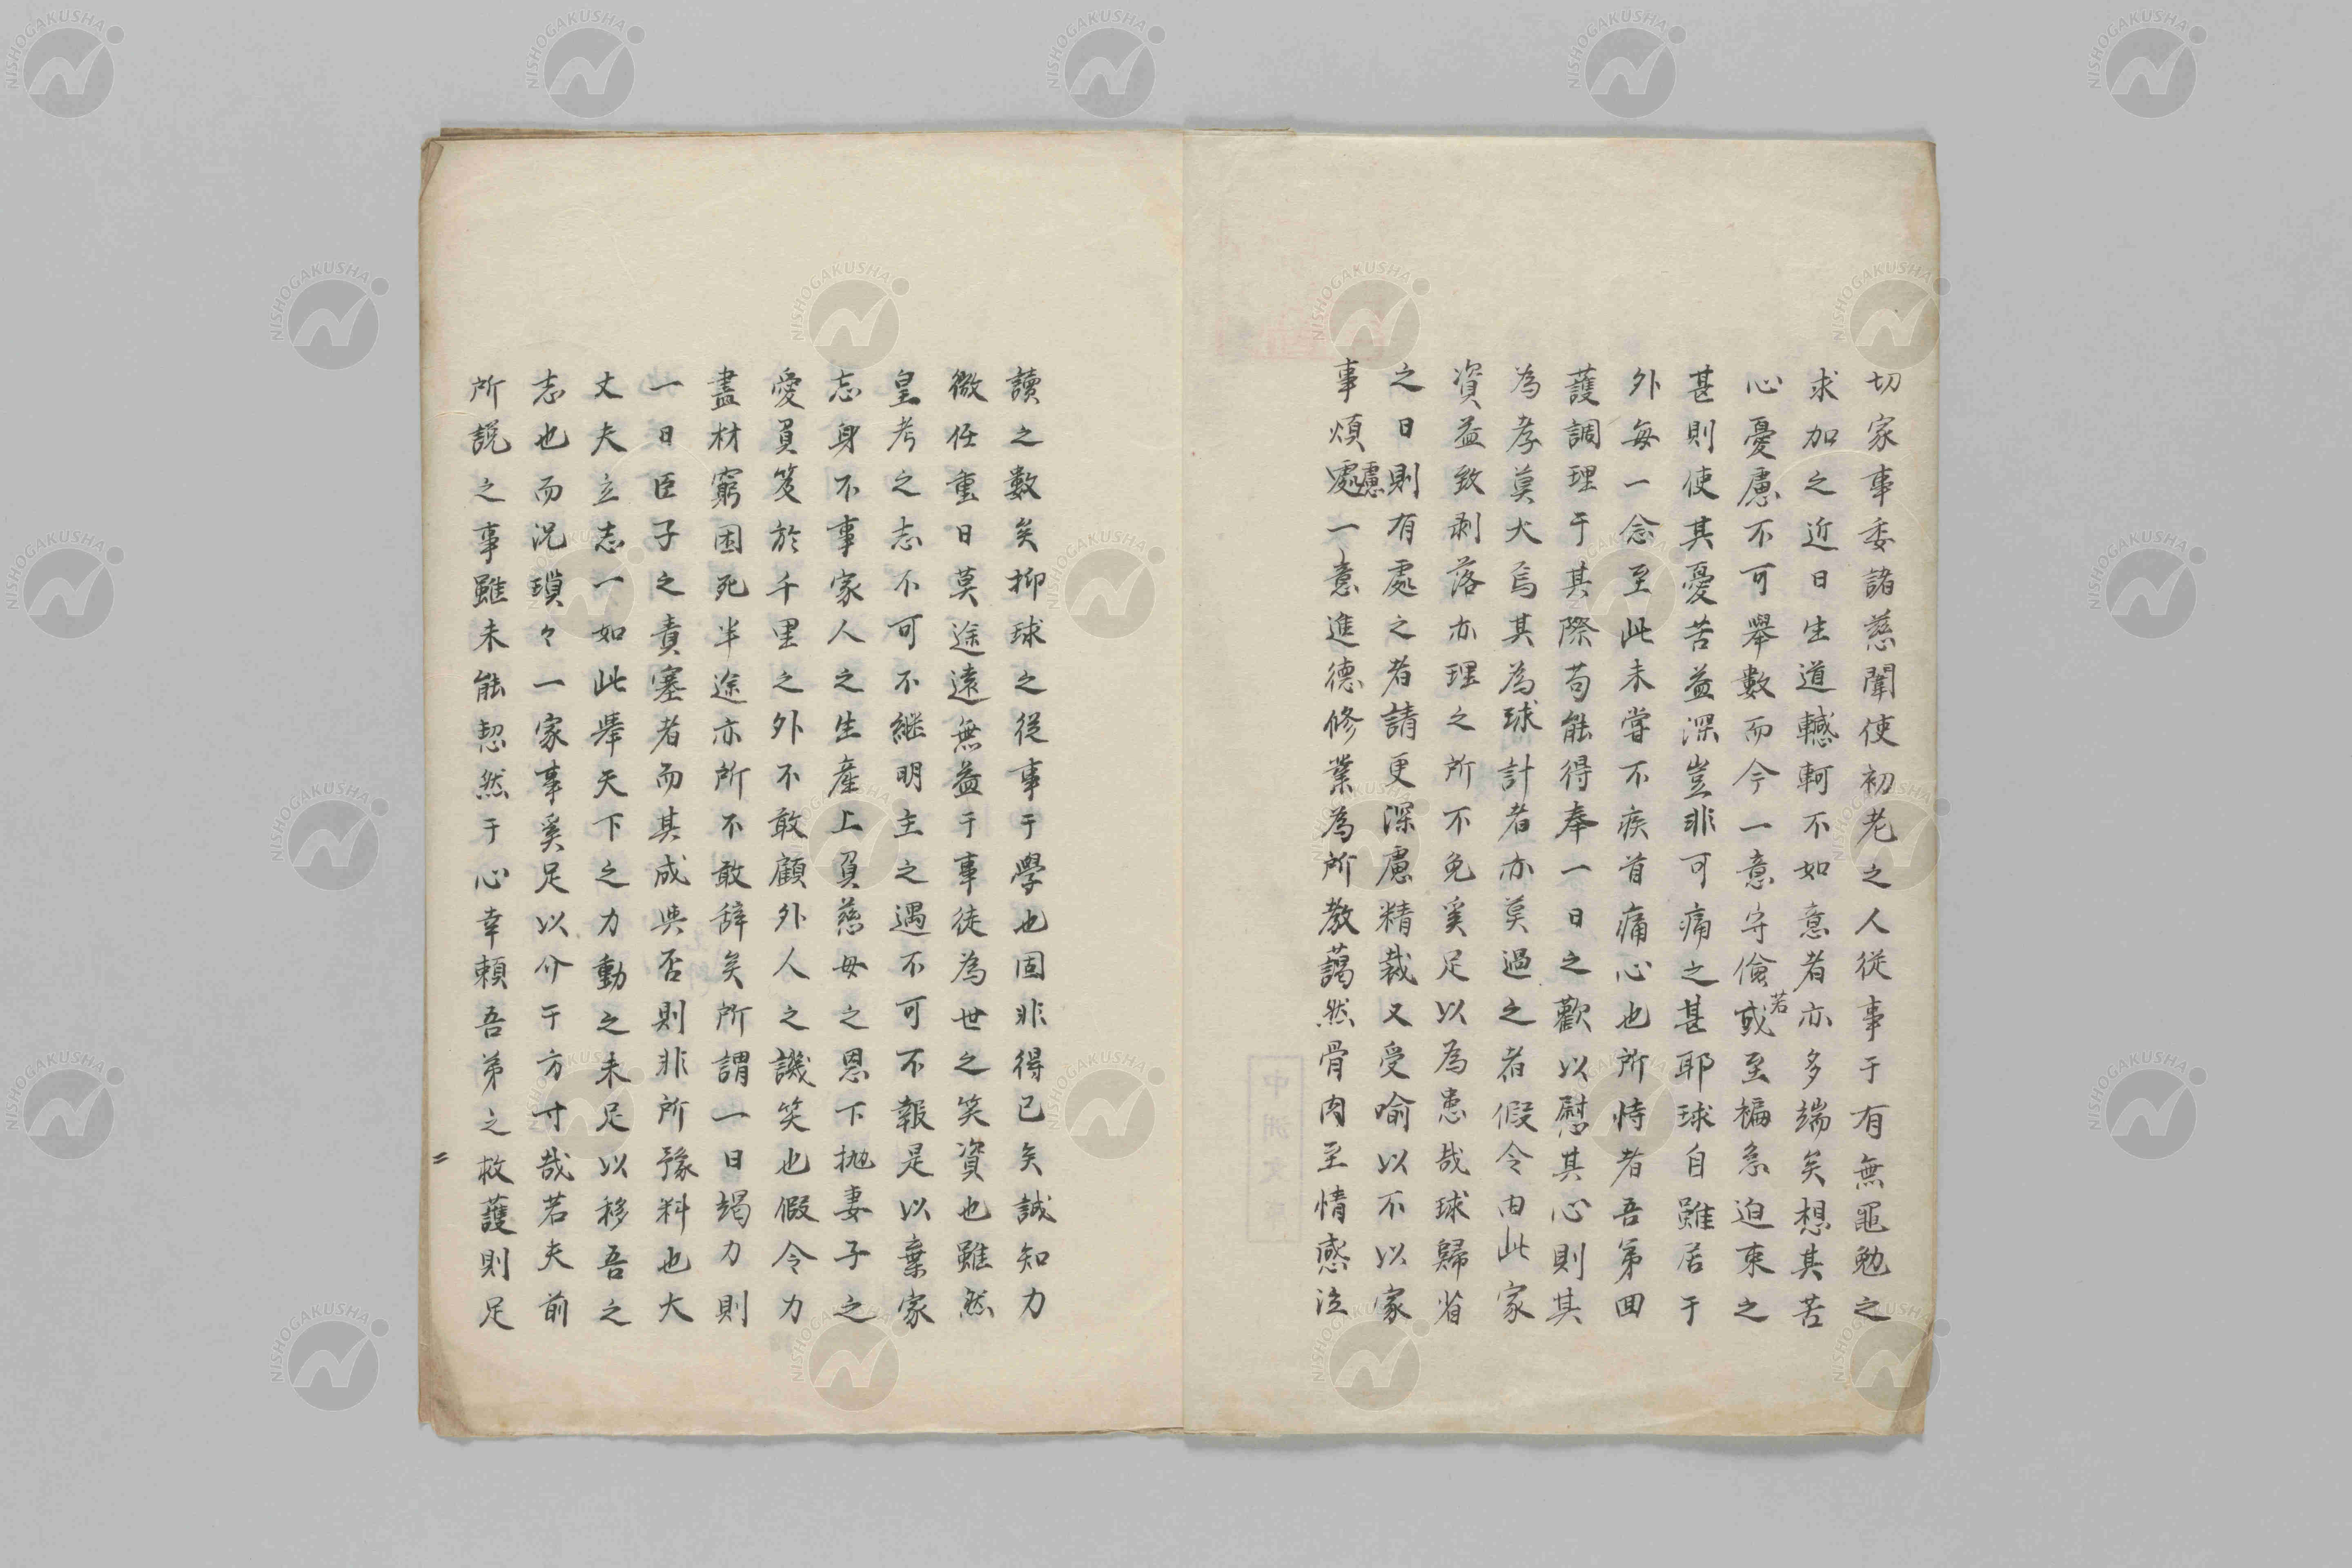 切家事委諸慈闈使初老之人從事于有無黽勉之
求加之近日生道轗軻不如意者亦多端矣想其苦
心憂慮不可舉數而今一意守儉或若至褊急迫束之
甚則使其憂苦益深豈非可痛之甚耶球自雖居于
外每一念至此未嘗不疾首痛心也所恃者吾弟回
護調理于其際苟能得奉一日之歡以慰其心則其
為孝莫大焉其為球計者亦莫過之者假令由此家
資益致剥落亦理之所不免奚足以為患哉球歸省
之日則有處之者請更深慮精裁又受喻以不以家
事煩處慮一意進德修業為所教藹然骨肉至情感泣
讀之數矣抑球之從事于學也固非得已矣誠知力
微任重日莫途遠無益于事徒為世之笑資也雖然
皇考之志不可不継明主之遇不可不報是以棄家
忘身不事家人之生產上負慈母之恩下拋妻子之
愛負笈於千里之外不敢顧外人之譏笑也假令力
盡材窮困死半途亦所不敢辞矣所謂一日竭力則
一日臣子之責塞者而其成與否則非所豫料也大
丈夫立志一如此舉天下之力動之未足以移吾之
志也而況瑣々一家事奚足以介于方寸哉若夫前
所説之事雖未能恝然于心幸頼吾弟之救護則足
NISHOGAKUSHA